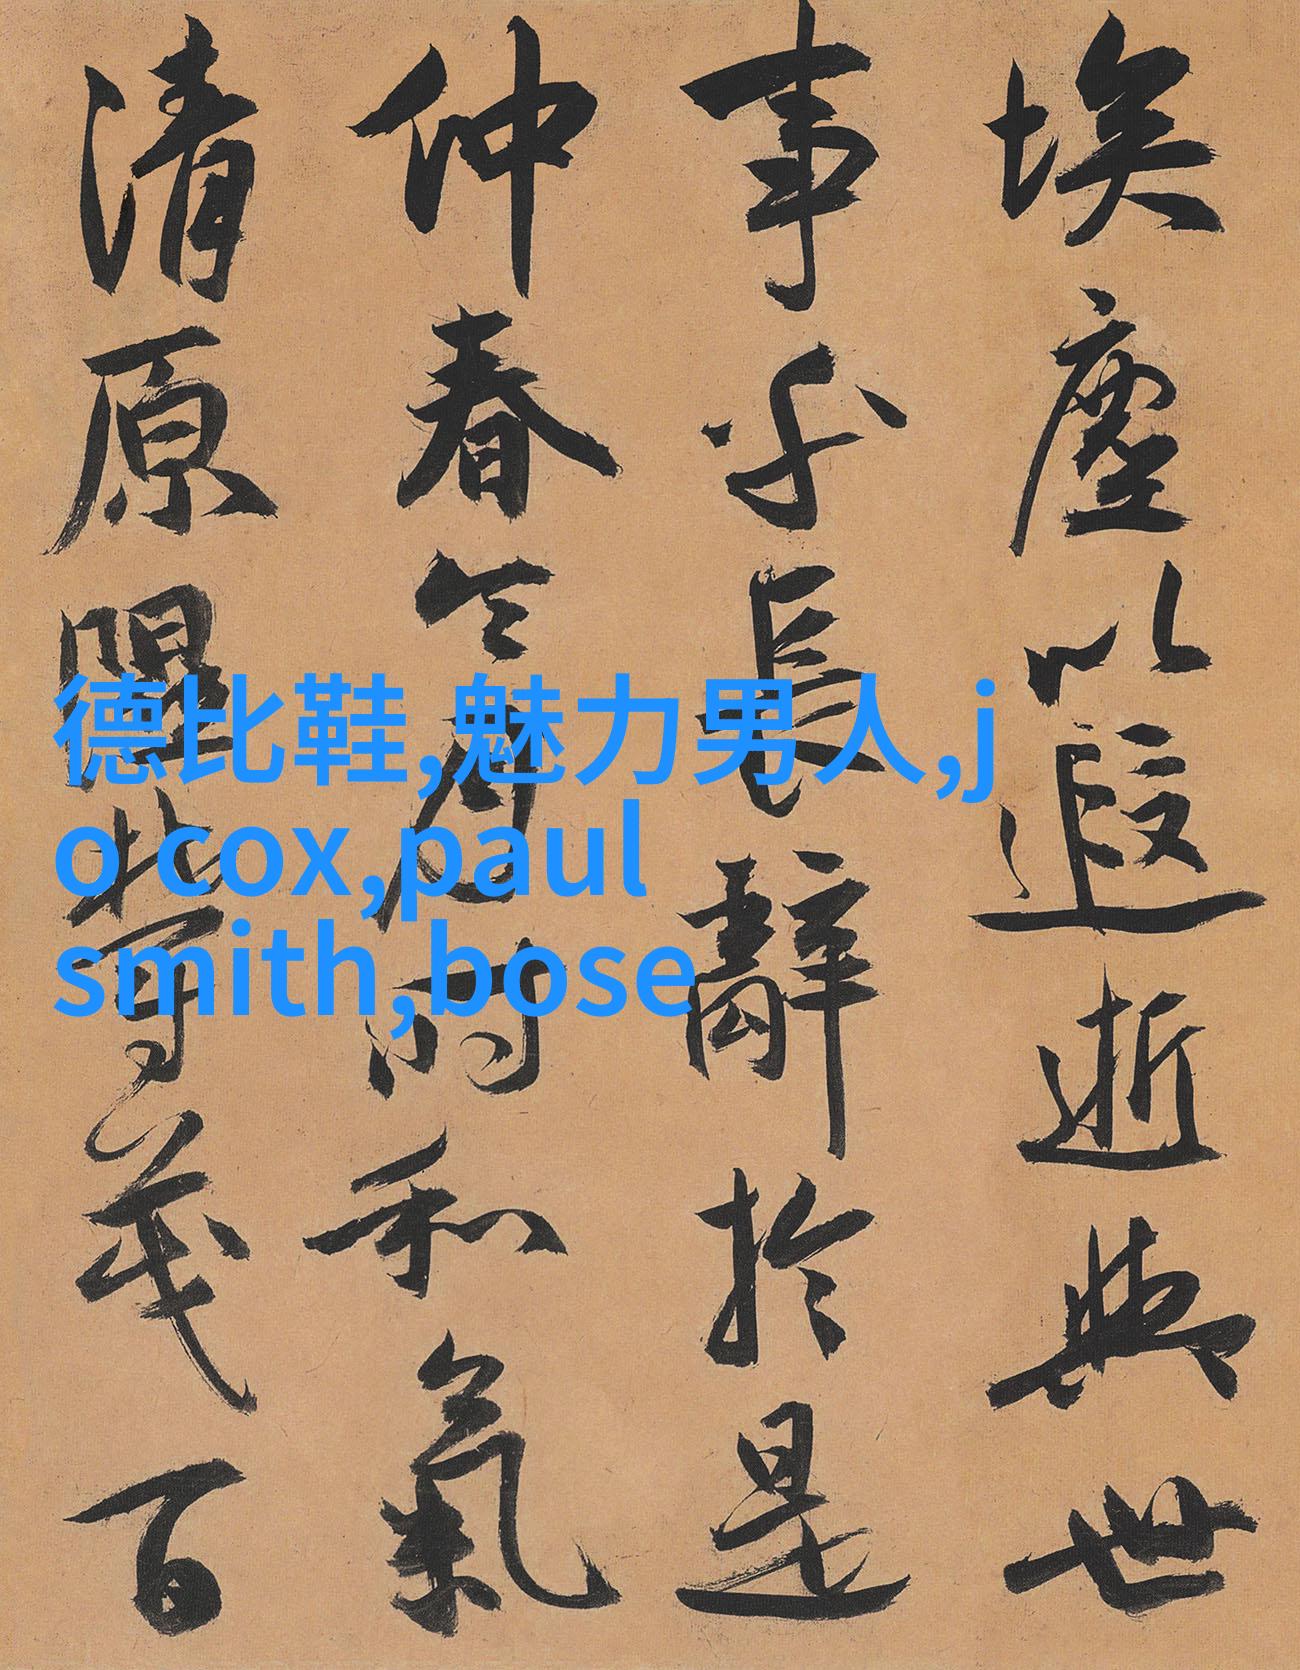 埃塵以遐逝與世
事乎長辭於是
仲春令月時和氣
清原隰鬱茂百
德比鞋,魅力男人,j
o cox,paul
smith,bose